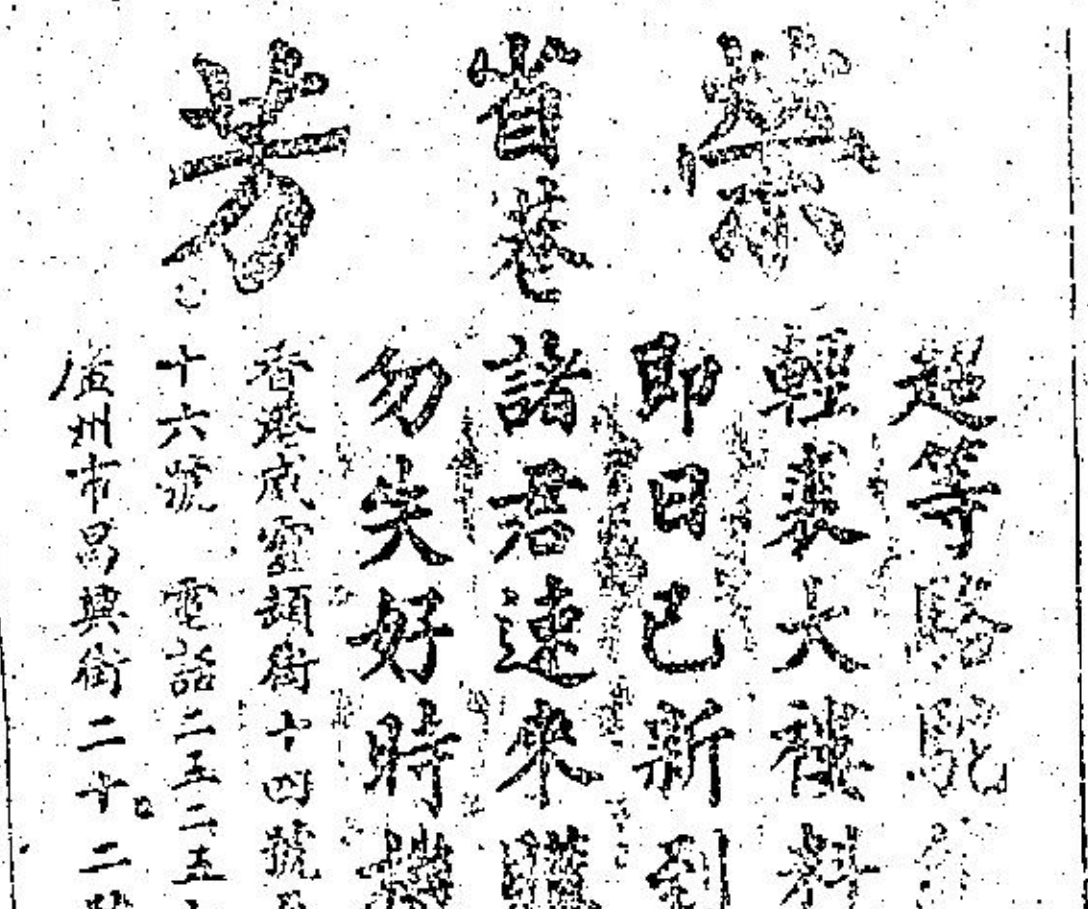 榮
省港
芳
超等駱駝
輕裘大褸料
即日已新到
諸君速來購
勿失好時機
香港威靈頓街十四號
十六號 電話二五二五
廣州市昌興街二十二號